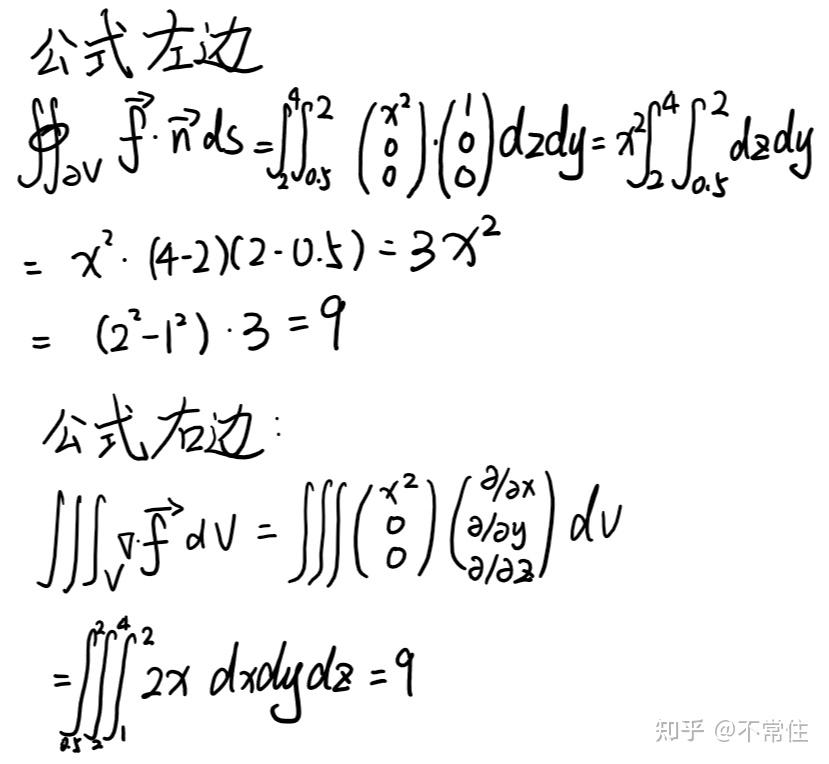 公式左边
∯_{∂V} \vec{f}·\vec{n} ds = ∫_2^4 ∫_{0.5}^2 (x² 0 0)·(1 0 0) dzdy = x² ∫_2^4 ∫_{0.5}^2 dzdy
= x²·(4-2)(2-0.5) = 3x²
= (2²-1²)·3 = 9
公式右边:
∭_V ∇·\vec{f} dV = ∭ (x² 0 0) (∂/∂x ∂/∂y ∂/∂z) dV
= ∫_{0.5}^2 ∫_2^4 ∫_1^2 2x dxdydz = 9
知乎 @不常住